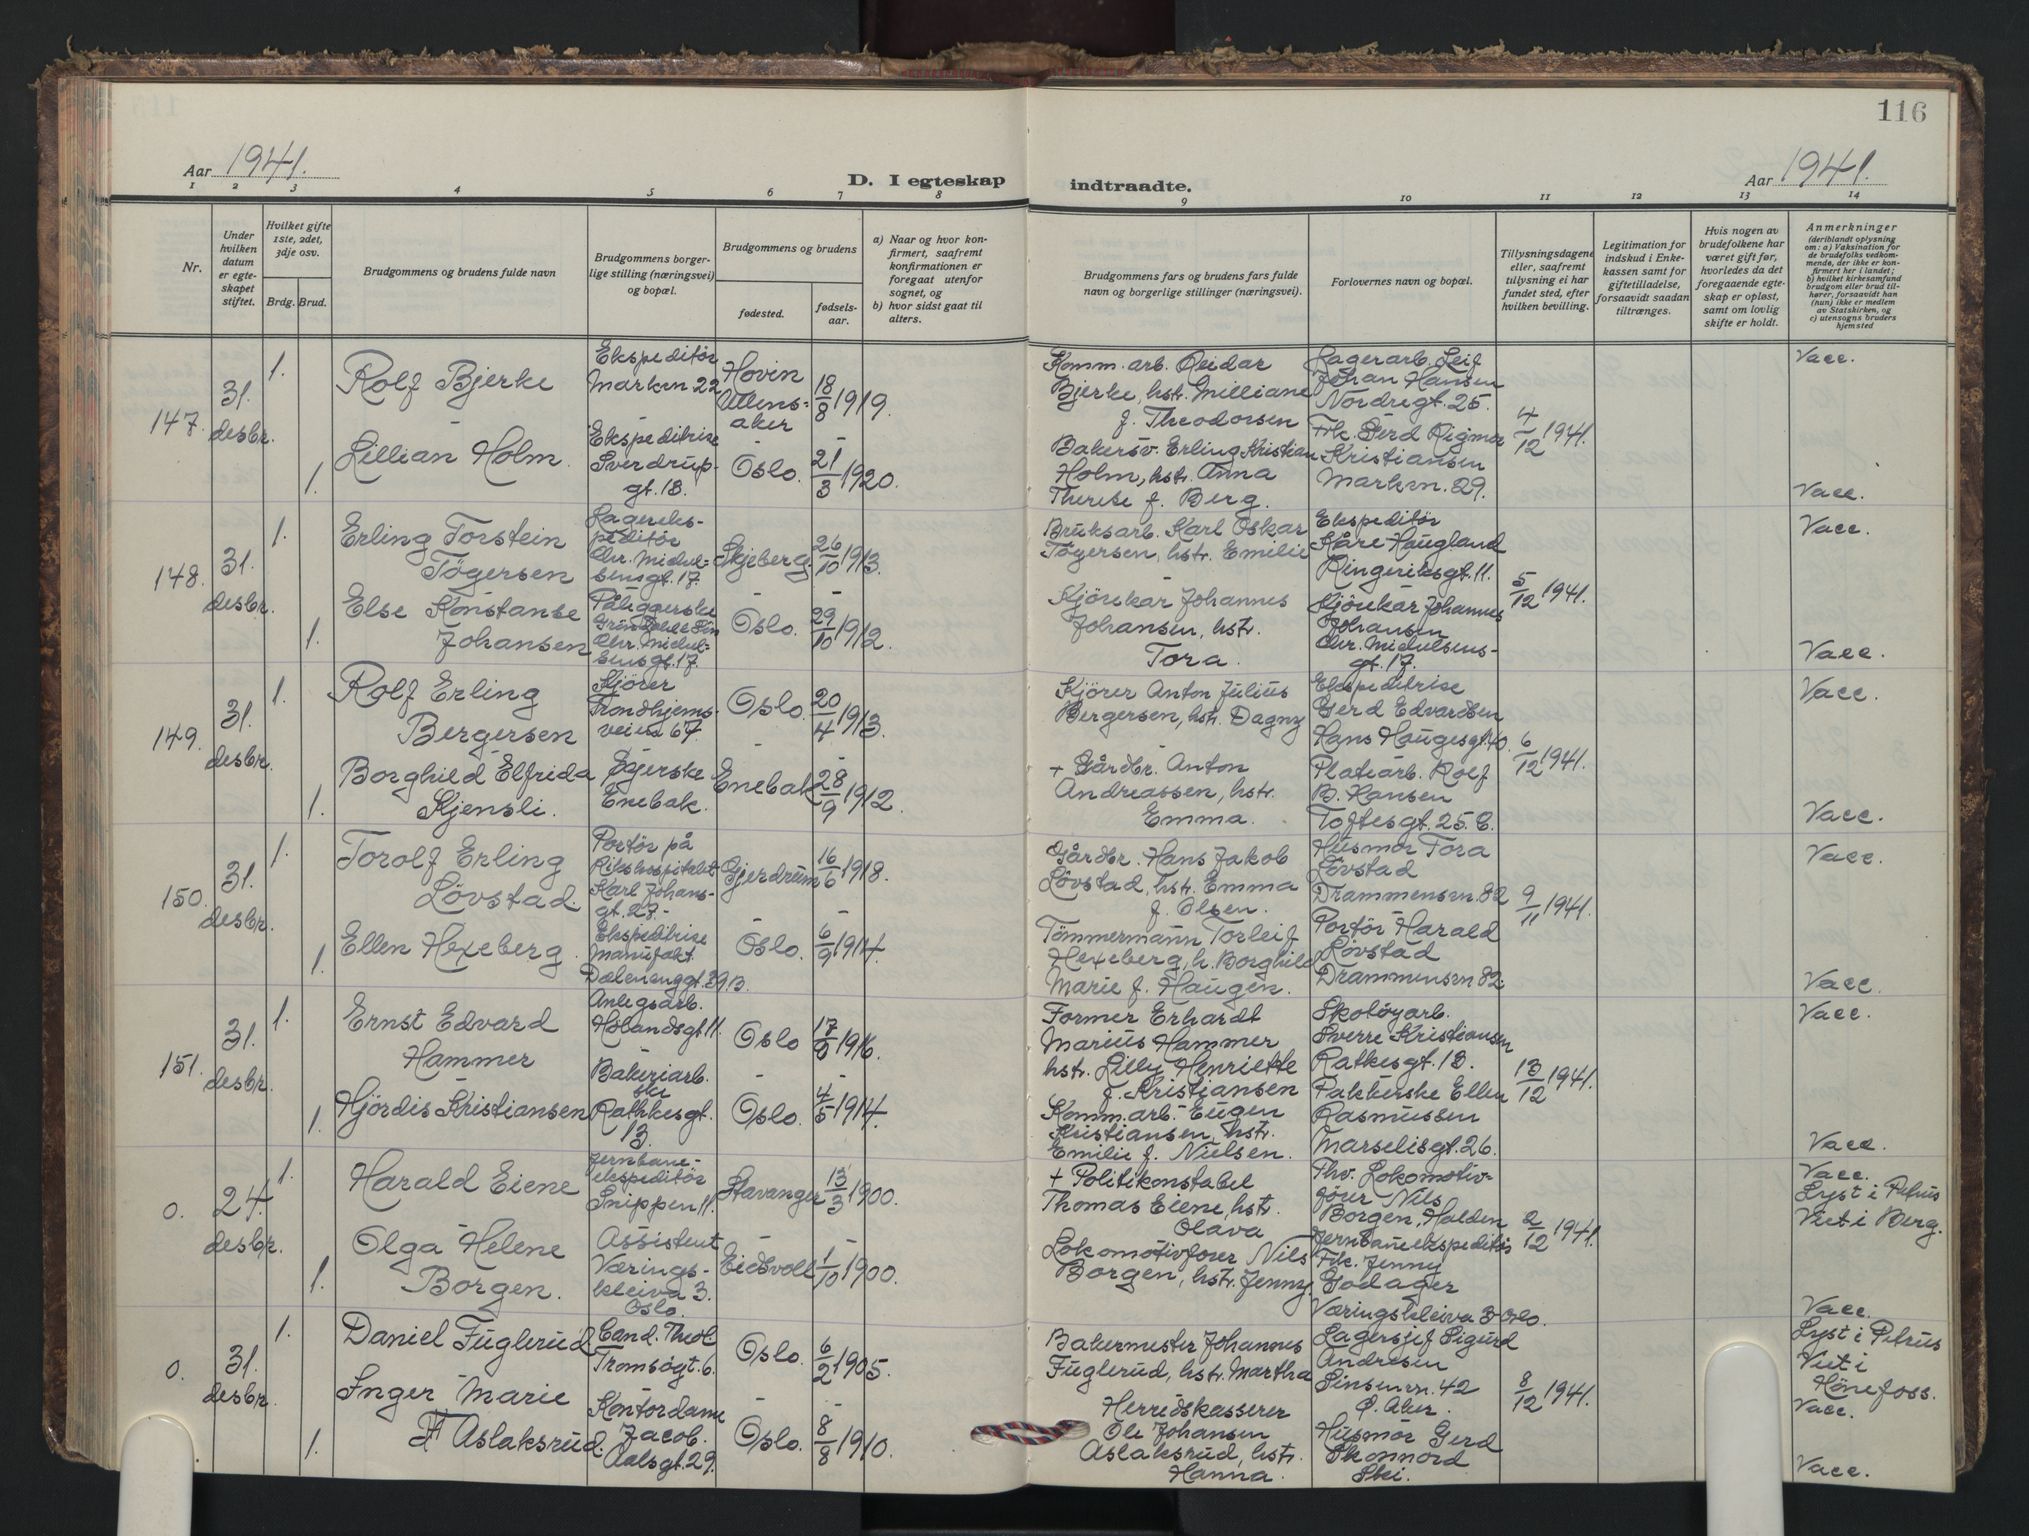 116
Aar 1941.
D. I egteskap indtraadte.
Aar 1941.
1 2 3 4 5 6 7 8 9 10 11 12 13 14
Nr.
Under hvilken datum er egteskapet stiftet.
Hvilket gifte 1ste, 2det, 3dje osv.
Brdg. Brud.
Brudgommens og brudens fulde navn
Brudgommens borgerlige stilling (næringsvei) og bopæl.
Brudgommens og brudens
fødested.
fødselsaar.
a) Naar og hvor konfirmert, saafremt konfirmationen er foregaat utenfor sognet, og
b) hvor sidst gaat til alters.
Brudgommens fars og brudens fars fulde navn og borgerlige stillinger (næringsvei).
Forlovernes navn og bopæl.
Tillysningsdagene eller, saafremt tillysning ei har fundet sted, efter hvilken bevilling.
Legitimation for indskud i Enkekassen samt for giftetilladelse, forsaavidt saadan tiltrænges.
Hvis nogen av brudefolkene har været gift før, hvorledes da det foregaaende egteskap er opløst, samt om lovlig skifte er holdt.
Anmerkninger
(deriblandt oplysning om: a) Vaksination for de brudefolks vedkommende, der ikke er konfirmert her i landet;
b) hvilket kirkesamfund brudgom eller brud tilhører, forsaavidt han (hun) ikke er medlem av Statskirken, og
c) utensogns bruders hjemsted
147. 31. desbr.
1. Rolf Bjerke
Ekspeditør
Marken 22
Hovin
Ullens-
aker
18/8 1919.
Komm. arb. Reidar
Bjerke, hstr. Milliane
f. Theodorsen
Lagerarb. Leif
Johan Hansen
Nordregt. 25.
4/12 1941.
Vacc.
1. Lillian Holm.
Ekspeditrise
Sverdrup-
gt. 13.
Oslo.
21/3 1920.
Bakersv. Erling Kristian
Holm, hstr. Anna
Therese f. Berg.
Frk. Gerd Rigmor
Kristiansen
Markvn. 29.
Vacc.
148. 31. desbr.
1. Erling Torstein
Tögersen
Lagereks-
peditör
Chr. Michel-
sensgt. 17.
Skjeberg
26/10 1913.
Bruksarb. Karl Oskar
Tögersen, hstr. Emilie
Ekspeditör
Kåre Haugland
Ringeriksgt. 11.
5/12 1941.
Vacc.
1. Else Konstanse
Johansen
Påleggerske
Chr. Michel-
sensgt. 17.
Oslo.
29/10 1912.
Kjörekar Johannes
Johansen, hstr.
Tora.
Kjörekar Johannes
Johansen
Chr. Michelsens-
gt. 17.
Vacc.
149. 31. desbr.
1. Rolf Erling
Bergersen
Kjörer
Trondhjems-
veien 67
Oslo.
20/4 1913.
Kjörer Anton Julius
Bergersen, hstr. Dagny
Ekspeditrise
Gerd Edvardsen
Hans Haugesgt. 40.
6/12 1941.
Vacc.
1. Borghild Elfrida
Kjensli.
Syerske
Enebak.
Enebak
28/9 1912.
+ Gårdbr. Anton
Andreassen, hstr.
Emma.
Platearb. Rolf
B. Hansen
Toftesgt. 25. C.
Vacc.
150. 31. desbr.
1. Torolf Erling
Lövstad.
Portör på
Rikshospitalet
Karl Johans-
gt. 27.
Gjerdrum
16/6 1918.
Gårdbr. Hans Jakob
Lövstad, hstr. Emma
f. Olsen.
Husmor Tora
Lövstad
Drammensvn. 82
9/11 1941.
Vacc.
1. Ellen Hexeberg.
Ekspeditrise
Manufakt.
Dælenenggt. 39 B.
Oslo.
6/9 1914.
Tömmermann Torleif
Hexeberg, h. Borghild
Marie f. Haugen.
Portör Harald
Lövstad
Drammensvn 82.
Vacc.
151. 31. desbr.
1. Ernst Edvard
Hammer
Anlegsarb.
Hölandsgt. 11.
Oslo
17/8 1916.
Former Erhardt
Marius Hammer
hstr. Lilly Henriette
f. Kristiansen
Skotöyarb.
Sverre Kristiansen
Rathkesgt. 13.
13/12 1941.
Vacc.
1. Hjördis Kristiansen
Bakeriarb.
ske
Rathkesgt.
13.
Oslo.
4/5 1914.
Komm. arb. Eugen
Kristiansen, hstr.
Emilie f. Nielsen.
Pakkerske Ellen
Rasmussen
Marselisgt. 26.
Vacc.
0. 24. desbr.
1. Harald Eiene
Jernbane-
ekspeditör
Snippen 11.
Stavanger
13/3 1900.
+ Politikonstabel
Thomas Eiene, hstr.
Olava
Fhv. Lokomotiv-
förer Nils
Borgen, Halden
2/12 1941.
Vacc.
Lyst i Petrus
Viet i Berg.
1. Olga Helene
Borgen.
Assistent
Værings-
kleiva 3.
Oslo.
Eidsvoll
1/10 1900.
Lokomotivförer Nils
Borgen, hstr. Jenny
Jernbaneekspeditör
Frk. Jenny
Godager
Væringskleiva 3 Oslo.
Vacc.
0. 31. desbr.
1. Daniel Fuglerud
Cand. Theol
Tromsögt. 6.
Oslo.
6/2 1905.
Bakermester Johannes
Fuglerud, hstr. Martha
Lagersjef Sigurd
Andresen
Sinsenvn. 42
Ö. Aker.
8/12 1941.
Lyst i Petrus
Viet i
Hönefoss.
Vacc.
1. Inger Marie
Aslaksrud.
Kontordame
Jacob
Aalsgt. 29.
Oslo.
8/8 1910.
Herredskasserer
Ole Johansen
Aslaksrud, hstr.
Hanna.
Husmor Gerd
Skonnord
Ski.
Vacc.